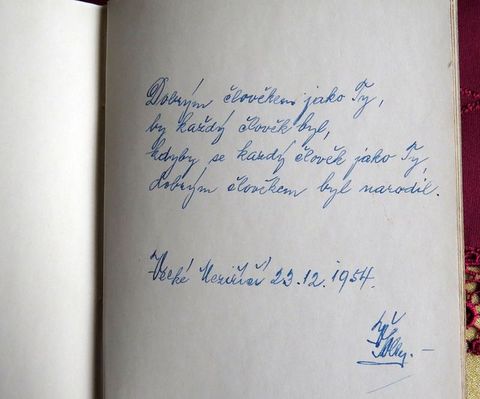 Dobrým člověkem jako Ty,
by každý člověk byl,
kdyby se každý člověk jako Ty,
dobrým člověkem byl narodil.
Velké Meziříčí 23.12.1954.